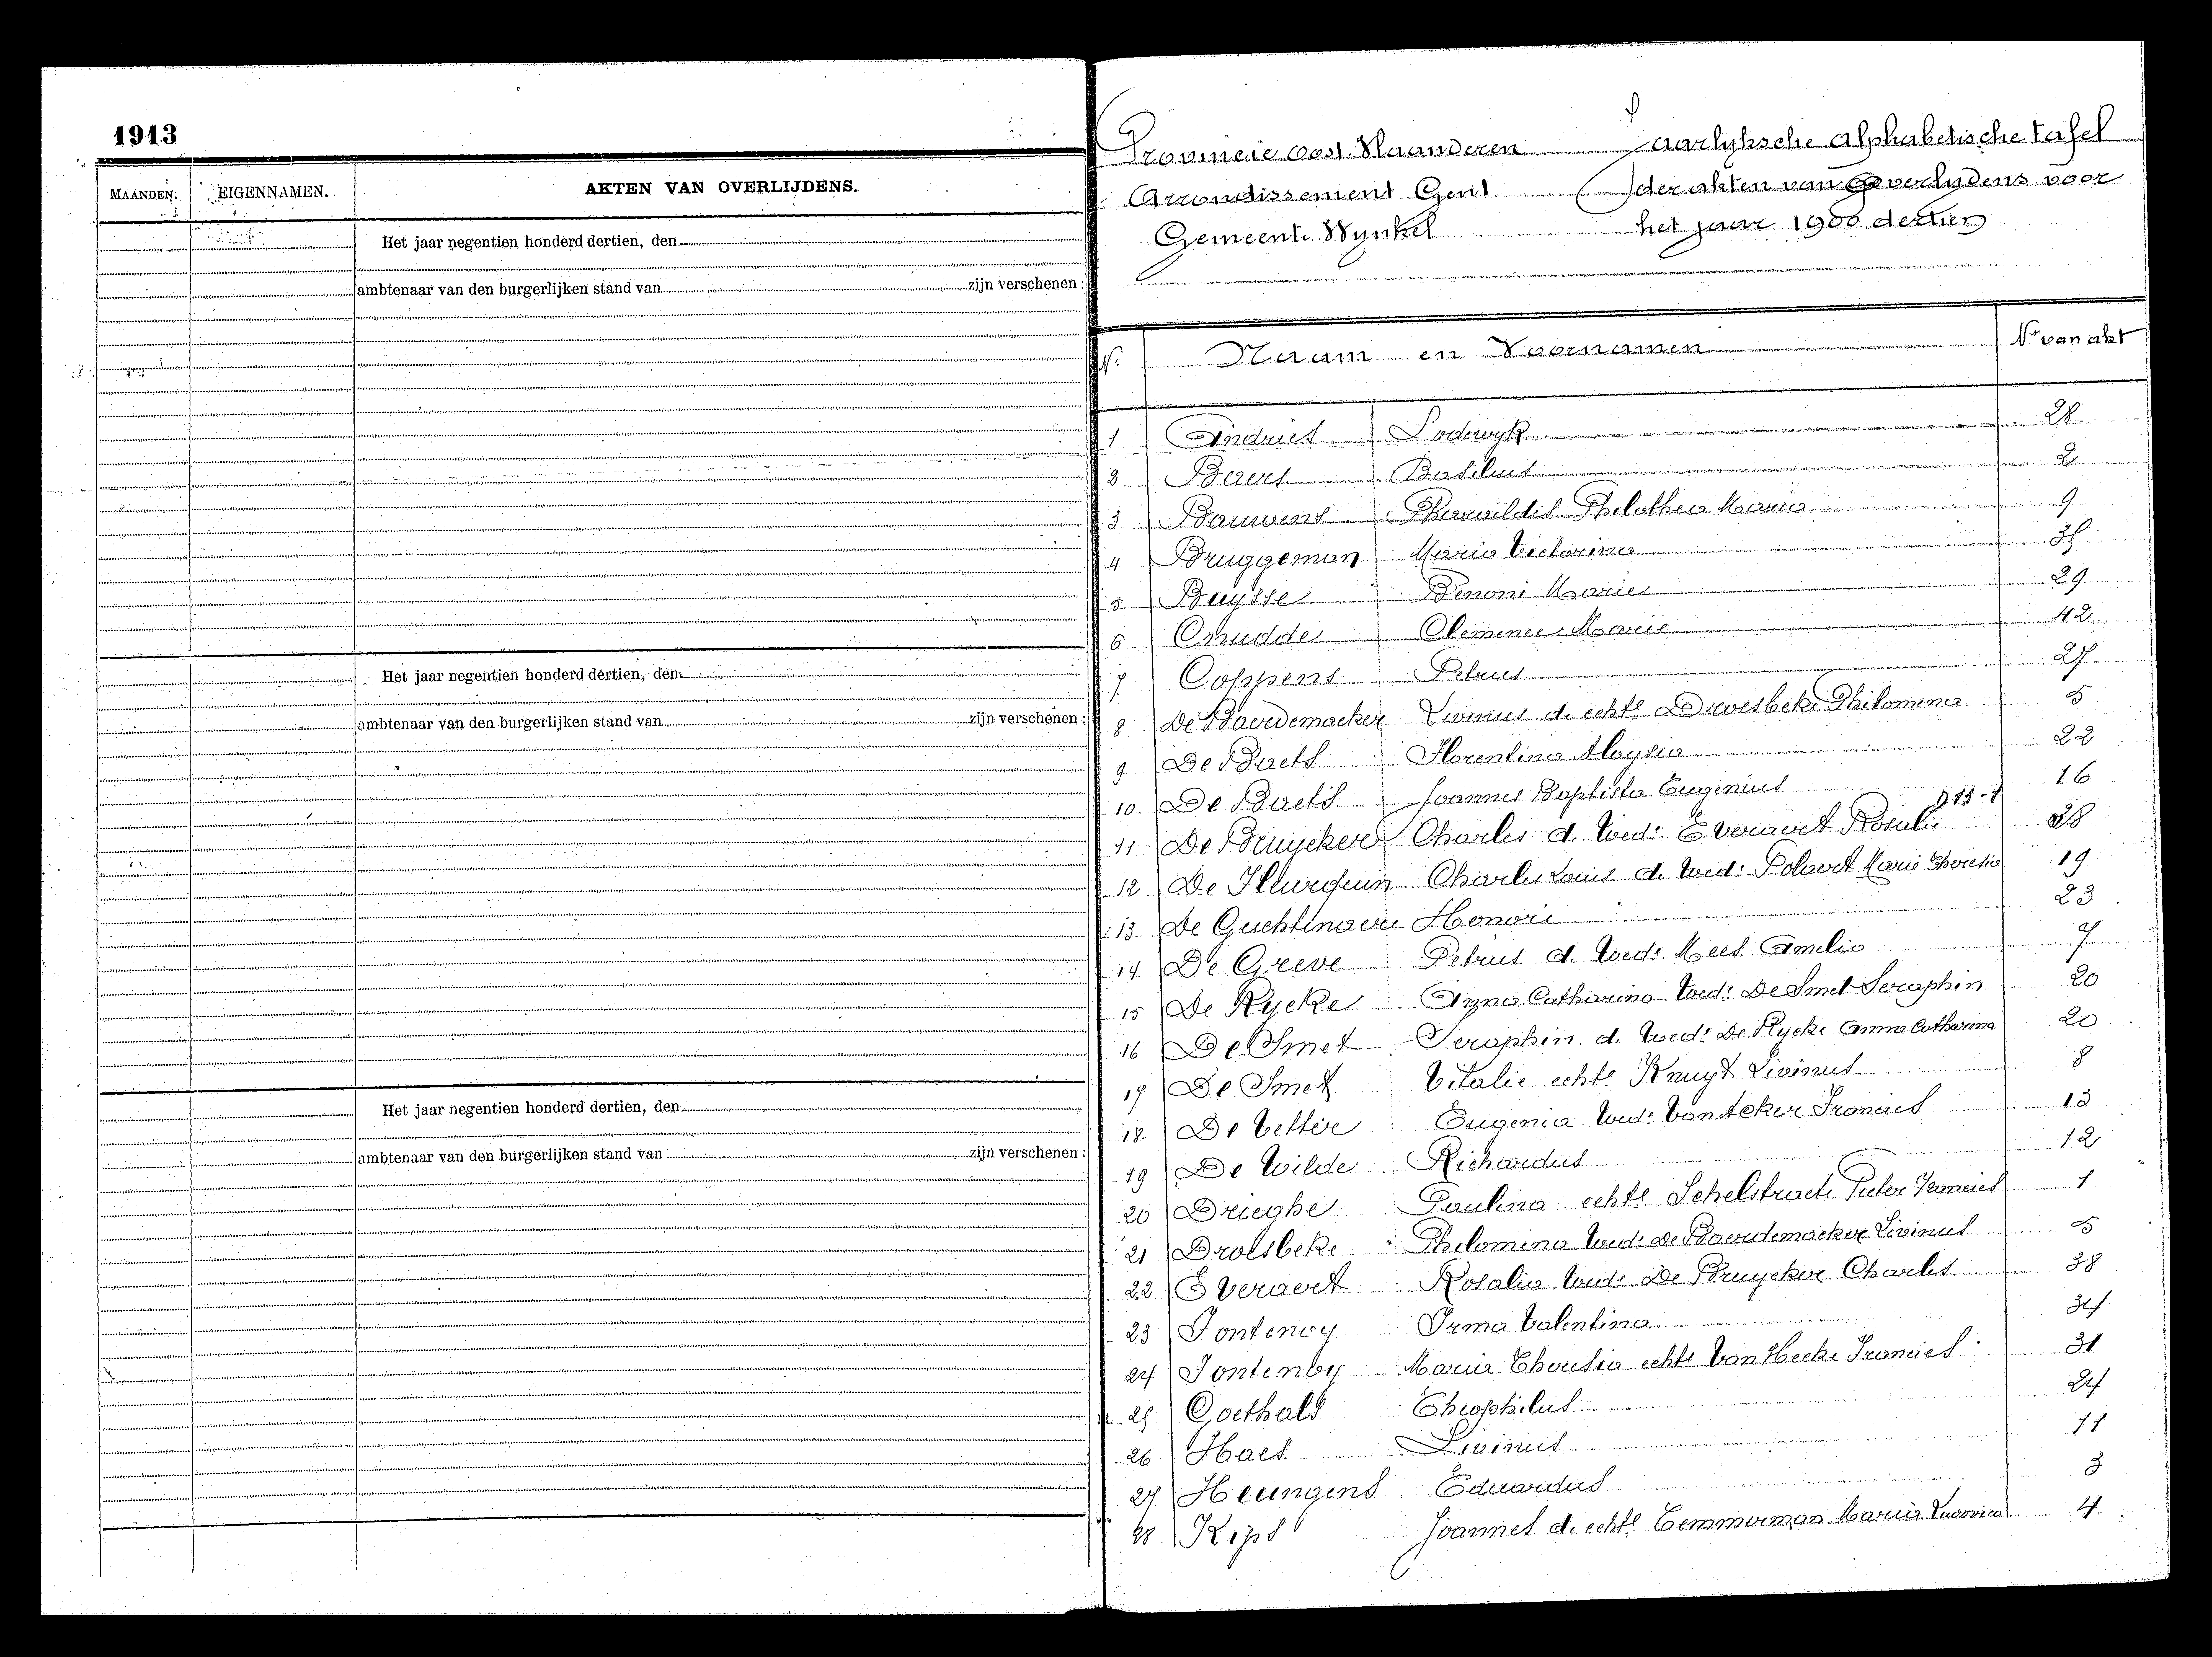 1913
MAANDEN. EIGENNAMEN. AKTEN VAN OVERLIJDENS.
Het jaar negentien honderd dertien, den
ambtenaar van den burgerlijken stand van zijn verschenen :
Het jaar negentien honderd dertien, den
ambtenaar van den burgerlijken stand van zijn verschenen :
Het jaar negentien honderd dertien, den
ambtenaar van den burgerlijken stand van zijn verschenen :
Provincie Oost-Vlaanderen Jaarlyksche alphabetische tafel
Arrondissement Gent der akten van overlydens voor
Gemeente Wynkel het jaar 1900 dertien
Nr. Naam en Voornamen Nr van akt
1 Andries Lodewyk 28
2 Baers Basilius 2
3 Bauwens Pharaildis Philothea Maria 9
4 Bruggeman Maria Victorina 35
5 Buysse Benoni Marie 29
6 Cnudde Clemence Marie 42
7 Coppens Petrus 27
8 De Baerdemaeker Livinus d. echte Droesbeke Philomena 5
9 De Baets Florentina Aloysia 22
10 De Baets Joannes Baptista Eugenius 16
11 De Bruycker Charles d. Wed: Everaert Rosalie 38
12 De Fleurquin Charles Louis d. Wed: Polaert Marie Theresia 19
13 De Guchtenaere Honoré 23
14 De Greve Petrus d. Wed: Mees Amelie 7
15 De Rycke Anna Catharina Wed: De Smet Seraphin 20
16 De Smet Seraphin d. Wed: De Rycke Anna Catharina 20
17 De Smet Vitalie echte Knuyt Livinus 8
18 De Vettere Eugenia Wed: Van Acker Francies 13
19 De Wilde Richardus 12
20 Drieghe Paulina echte Schelstraete Pieter Francies 1
21 Droesbeke Philomina Wed: De Baerdemaeker Livinus 5
22 Everaert Rosalia Wed: De Bruycker Charles 38
23 Fonteney Irma Valentina 34
24 Fontenoy Maria Theresia echte Van Hecke Francies 31
25 Goethals Theophilus 24
26 Haes Livinus 11
27 Heungens Eduardus 3
28 Kips Joannes d. echte Temmerman Maria Ludovica 4